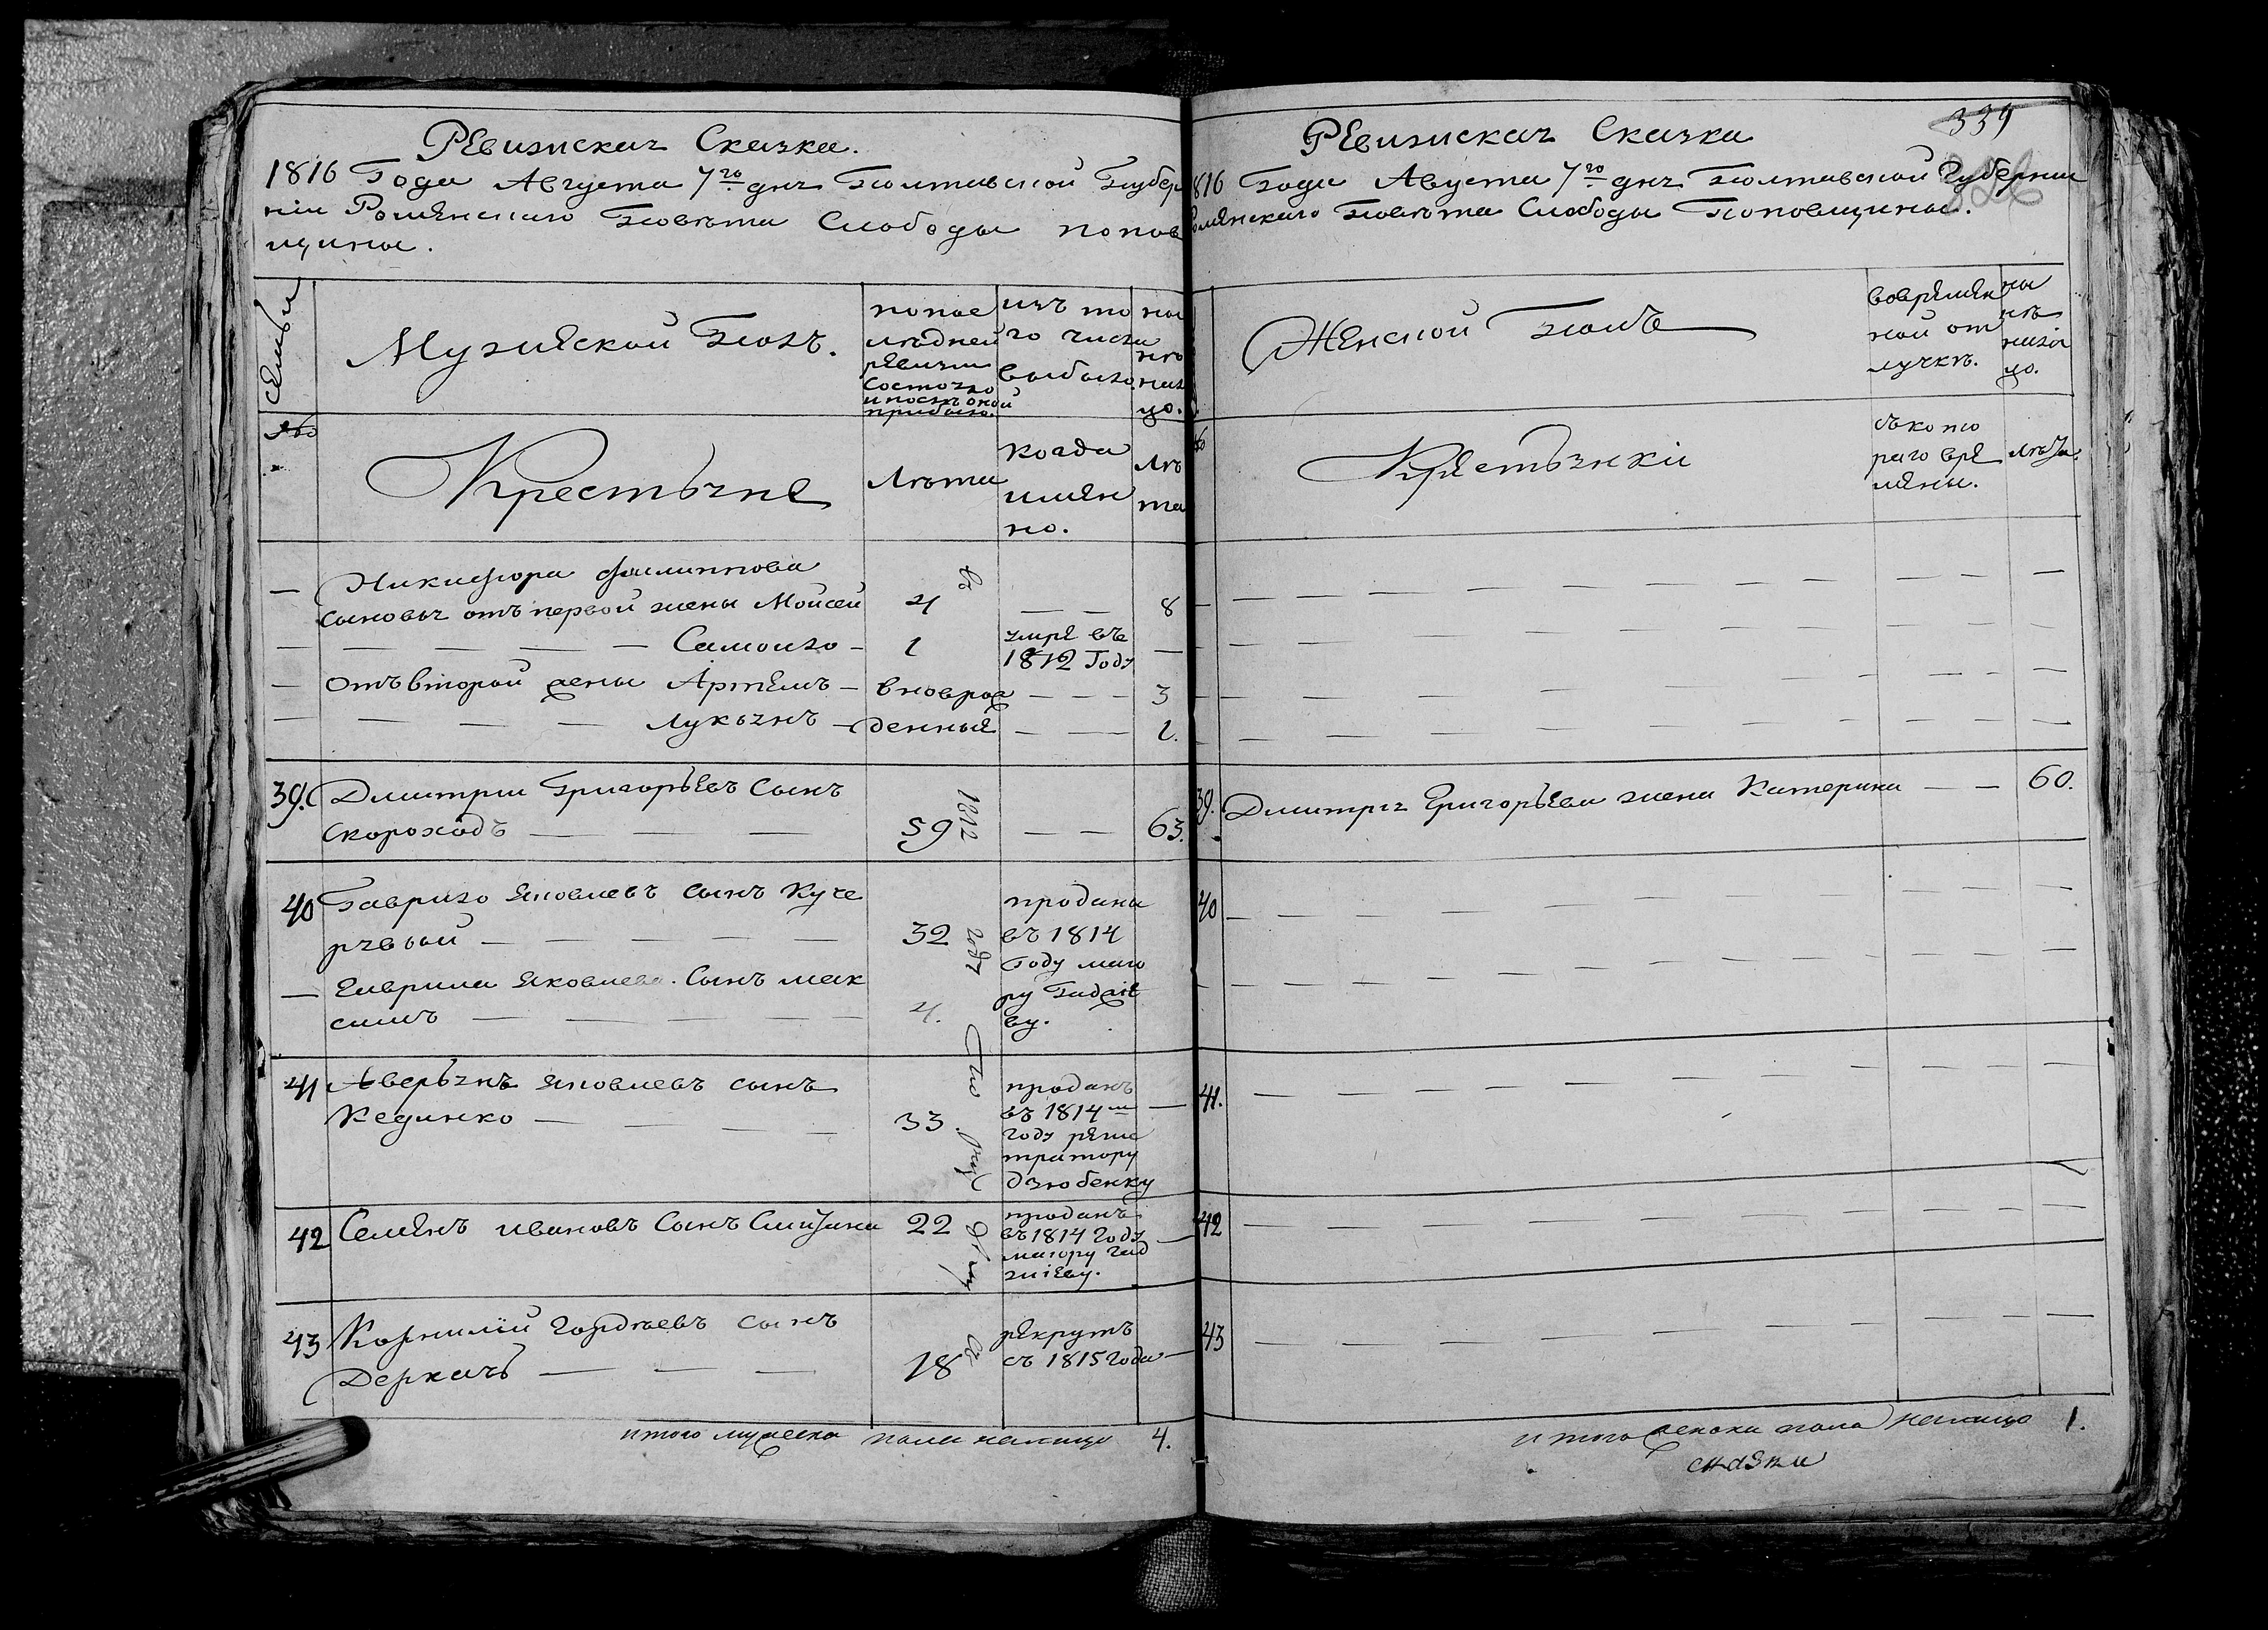 Ревизская Сказка.
1816 Года Августа 7го дня Полтавской Губер
ніи Роменского Повета Слободы попов
щины.
семьи
Мужеской Полъ.
попос
ледней
ревизии
Состояло
и после оной
прибыло.
изъ то
го числа
выбыло.
ны
не
нали
цо.
Крестьяне
лета
когда
имен
но.
ле
та
— Никифора филиппова
Сыновья отъ первой жены Мойсей 4 — — 8
— — — — — Самойло - 1 умре въ 1812 Году —
— Отъ второй жены Артемъ — вновраж — — — 3
— — — — Лукьянъ — денный — — 1.
39. Дмитрии Григорьевъ сынъ
скороходъ — — — 59 — — 63.
40 Гаврило Яковлевъ сынъ Куче
рявый — — — — — 32
— Гаврила Яковлева Сынъ мак
симъ — — — — — 4.
проданы
въ 1814
Году маио
ру
ву.
41 Аверьянъ Яковлевъ сынъ
Кединко — — — — 33.
проданъ
въ 1814м —
году реги
тратору
дзюбенку
42 Семенъ ивановъ Сынъ 22
проданъ
въ 1814 Году —
маиору
43 Корнилій гордеевъ сынъ
Деркачъ — — — 18
рекрутъ
съ 1815 года —
1812
году
итого мужеска пола налицо 4.
339
Ревизская Сказка
816 Года Августа 7го дня Полтавской Губернии
оменского Повета Слободы Поповщины.
Женской Полъ
вовремен
ной от
лучке.
ны
не
нали
цо.
Крестьянки
съ кото
раго вре
мены.
лета.
39. Дмитрия Григорьева жена Катерина — — 60.
40
41.
42
43
итого женска пола налицо 1.